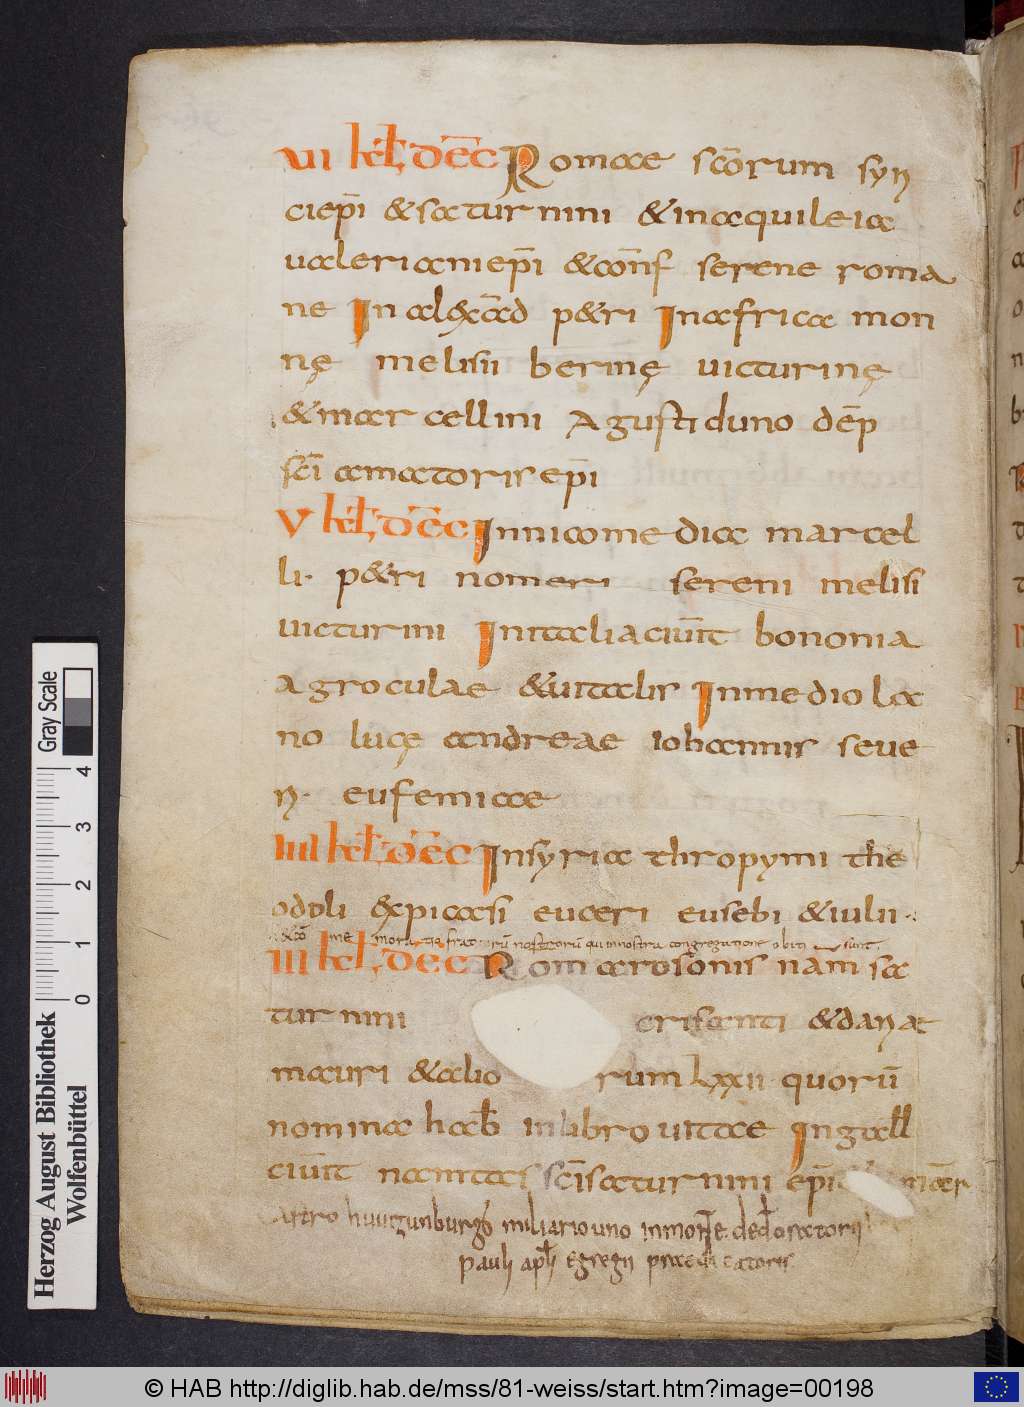 VI kƚ dēc Romae scōrum syn
ciep̄i & saturnini & in aquileia
ualeriani ep̄i & cōnf serene roma
ne In alexād petri In africa mon
nę melisii berinę uicturinę
& marcellini Agustiduno dēp
sc̄i amatoris ep̄i
V kƚ dēc In nicomedia marcel
li· petri nomeri sereni melisi
uicturini In italia ciūit bononia
agroculae & uitalis In mediola
no lucę andreae iohannis seue
n· eufemiae
IIII kƚ dēc In syria thropymi the
odoli & picasi euceri eusebi & iulii··
& cō memoratio fratrorū nostrorū qui in nostra congregatione obiti sunt
III kƚ dēc Rom a trosonis nam sa
turnini crisanti & darıa
mauri & alio rum lxxii· quorū
nomina hab in libro uitae In gall
ciūit nanitas sc̄i saturnini ep̄i mar
castro huuizunburg miliario uno in monte dedic oratorii
pauli apƚi egregii praedicatoris
Herzog August Bibliothek
Wolfenbüttel
Gray Scale
0 1 2 3 4
© HAB http://diglib.hab.de/mss/81-weiss/start.htm?image=00198